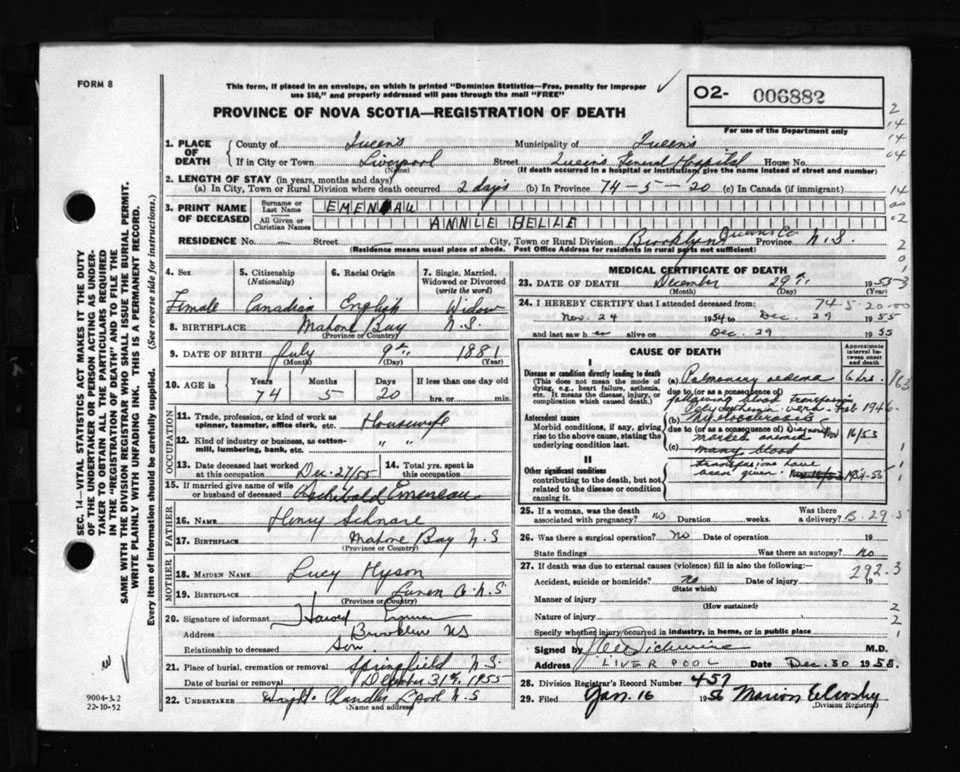 FORM 8
This form, if placed in an envelope, on which is printed "Dominion Statistics—Free, penalty for improper
use $50," and properly addressed will pass through the mail "FREE"
PROVINCE OF NOVA SCOTIA—REGISTRATION OF DEATH
O2- 006882
For use of the Department only
1. PLACE OF DEATH
County of Queens Municipality of Queens
If in City or Town Liverpool Street Queens General Hospital House No.
(Name) (If death occurred in a hospital or institution, give the name instead of street and number)
2. LENGTH OF STAY (in years, months and days)
(a) In City, Town or Rural Division where death occurred 2 days (b) In Province 74-5-20 (c) In Canada (if immigrant)
3. PRINT NAME OF DECEASED
Surname or Last Name EMENEAU
All Given or Christian Names ANNIE BELLE
RESIDENCE No. — Street — City, Town or Rural Division Brooklyn Queens Co Province N.S.
(Residence means usual place of abode. Post Office Address for residents in rural parts not sufficient)
4. Sex Female
5. Citizenship (Nationality) Canadian
6. Racial Origin English
7. Single, Married, Widowed or Divorced (write the word) Widow
8. BIRTHPLACE Mahone Bay N.S.
(Province or Country)
9. DATE OF BIRTH July 9th 1881
(Month) (Day) (Year)
10. AGE in Years 74 Months 5 Days 20 If less than one day old
hrs. or min.
OCCUPATION
11. Trade, profession, or kind of work as spinner, teamster, office clerk, etc. Housewife
12. Kind of industry or business, as cotton-mill, lumbering, bank, etc. " "
13. Date deceased last worked at this occupation Dec. 27/55
14. Total yrs. spent in this occupation
15. If married give name of wife or husband of deceased Archibald Emeneau
FATHER
16. NAME Henry Schnare
17. BIRTHPLACE Mahone Bay N.S
(Province or Country)
MOTHER
18. MAIDEN NAME Lucy Hyson
19. BIRTHPLACE Lunen Co. N.S
(Province or Country)
20. Signature of informant Harold
Address Brooklyn NS
Relationship to deceased Son
21. Place of burial, cremation or removal Springfield N.S.
Date of burial or removal December 31st, 1955
22. UNDERTAKER Chandler L'pool N.S
(Name and address)
MEDICAL CERTIFICATE OF DEATH
23. DATE OF DEATH December 29th 1955
(Month) (Day)
24. I HEREBY CERTIFY that I attended deceased from: 74-5-20-00
Nov. 24 1954 to Dec. 29 1955
and last saw her alive on Dec. 29 1955
CAUSE OF DEATH
Approximate interval between onset and death
I
Disease or condition directly leading to death
(This does not mean the mode of dying, e.g., heart failure, asthenia, etc. It means the disease, injury, or complication which caused death.)
(a) Pulmonary oedema 6 hrs.
due to (or as a consequence of)
following blood transfusion
Polycythemia vera Feb 1946
Antecedent causes
Morbid conditions, if any, giving rise to the above cause, stating the underlying condition last.
(b) Myelosclerosis
due to (or as a consequence of) Diagnosed Nov 16/53
marked anemia
(c) many blood
II
Other significant conditions
contributing to the death, but not related to the disease or condition causing it.
transfusions have
been given. 1954-55
25. If a woman, was the death associated with pregnancy? no Duration weeks. Was there a delivery?
26. Was there a surgical operation? No Date of operation 19
State findings Was there an autopsy? No
27. If death was due to external causes (violence) fill in also the following: 292.3
Accident, suicide or homicide? no Date 19
(State which)
Manner of injury
(How sustained)
Nature of injury
Specify whether injury occurred in industry, in home, or in public place
Signed by M.D.
Address LIVERPOOL Date Dec. 30 1955.
28. Division Registrar's Record Number 457
29. Filed Jan. 16 1956 Marion
(Division Registrar)
SEC. 14—VITAL STATISTICS ACT MAKES IT THE DUTY
OF THE UNDERTAKER OR PERSON ACTING AS UNDER-
TAKER TO OBTAIN ALL THE PARTICULARS REQUIRED
IN THE "REGISTRATION OF DEATH" AND TO FILE THE
SAME WITH THE DIVISION REGISTRAR WHO SHALL ISSUE THE BURIAL PERMIT.
WRITE PLAINLY WITH UNFADING INK. THIS IS A PERMANENT RECORD.
Every item of information should be carefully supplied. (See reverse side for instructions.)
9004-3.2
22-10-52